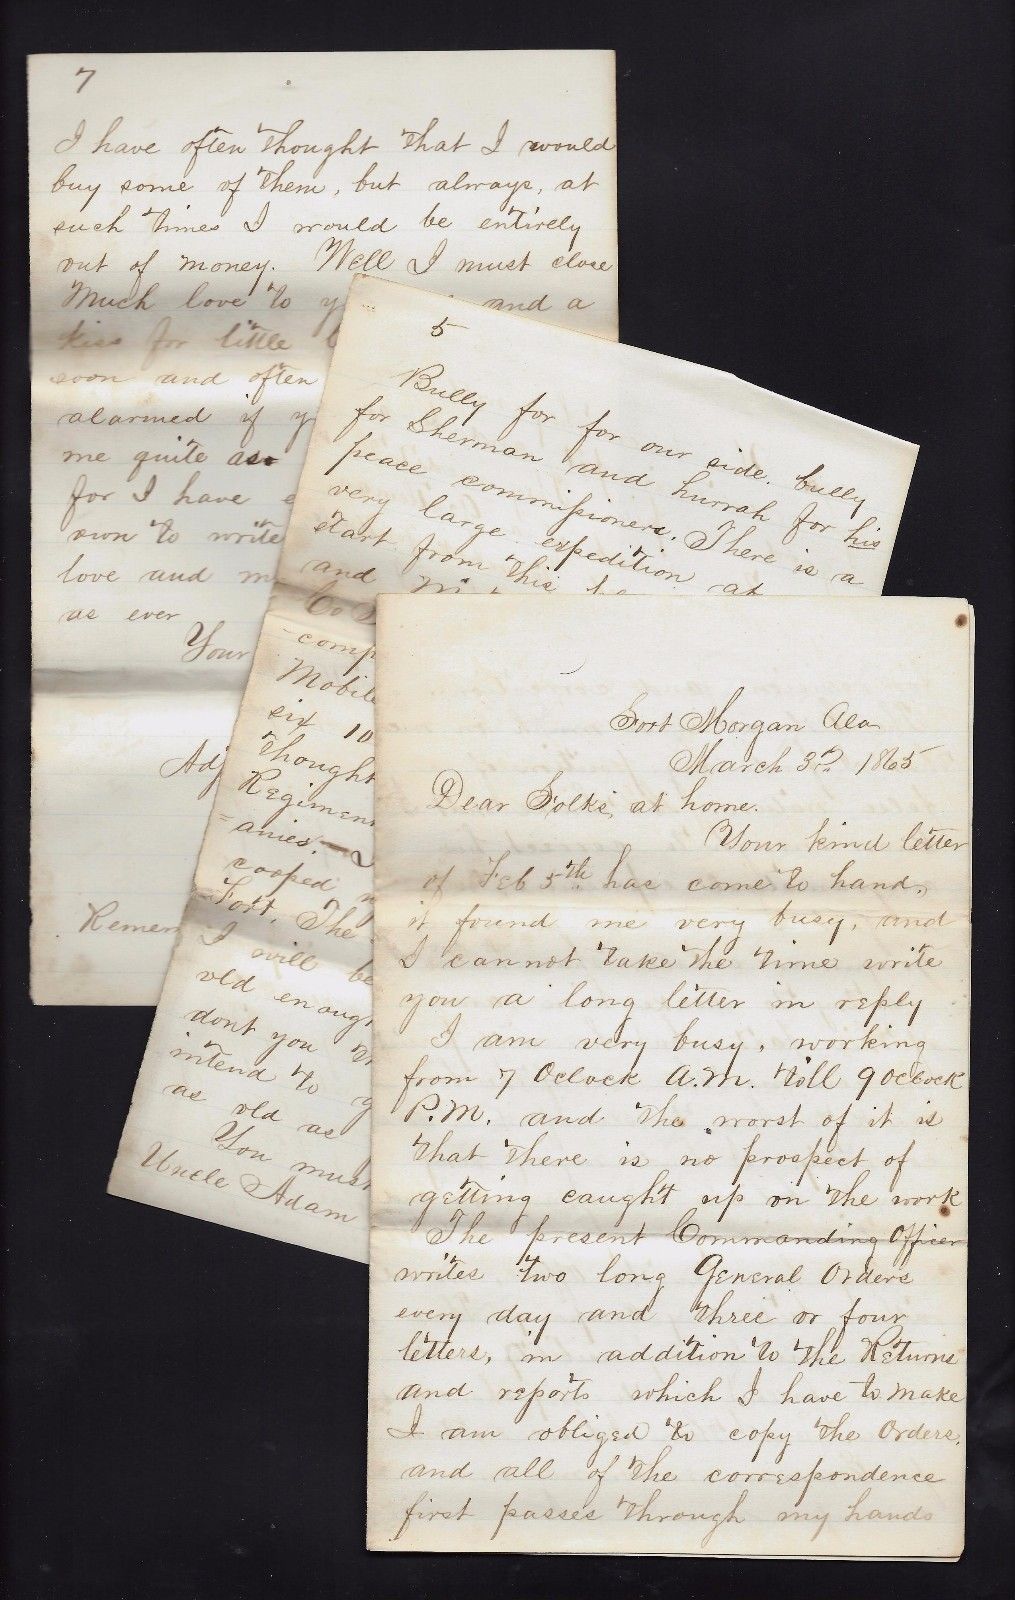 7
I have often thought that I would
buy some of them, but always, at
such times I would be entirely
out of money. Well I must close
Much love to y and a
kiss for little
soon and often
alarmed if y
me quite as
for I have
own to write
love and m
as ever
Your
Adj
Remem
5
Bully for for our side. bully
for Sherman and hurrah for his
peace commissioners. There is a
very large expedition at
start from this
and
Co
comp
Mobile
six 10
thought
Regiment
anies.
cooped
Fort. The
I will be
old enough
dont you
intend to y
as old as
You must
Uncle Adam
Fort Morgan Ala
March 3rd 1865
Dear Folks, at home.
Your kind letter
of Feb 5th has come to hand,
it found me very busy, and
I cannot take the time write
you a long letter in reply
I am very busy, working
from 7 Oclock A.M. till 9 oclock
P.M. and the worst of it is
that there is no prospect of
getting caught up in the work
The present Commanding Officer
writes two long General Orders
every day and three or four
letters, in addition to the Returns
and reports which I have to make
I am obliged to copy the Orders,
and all of the correspondence
first passes through my hands